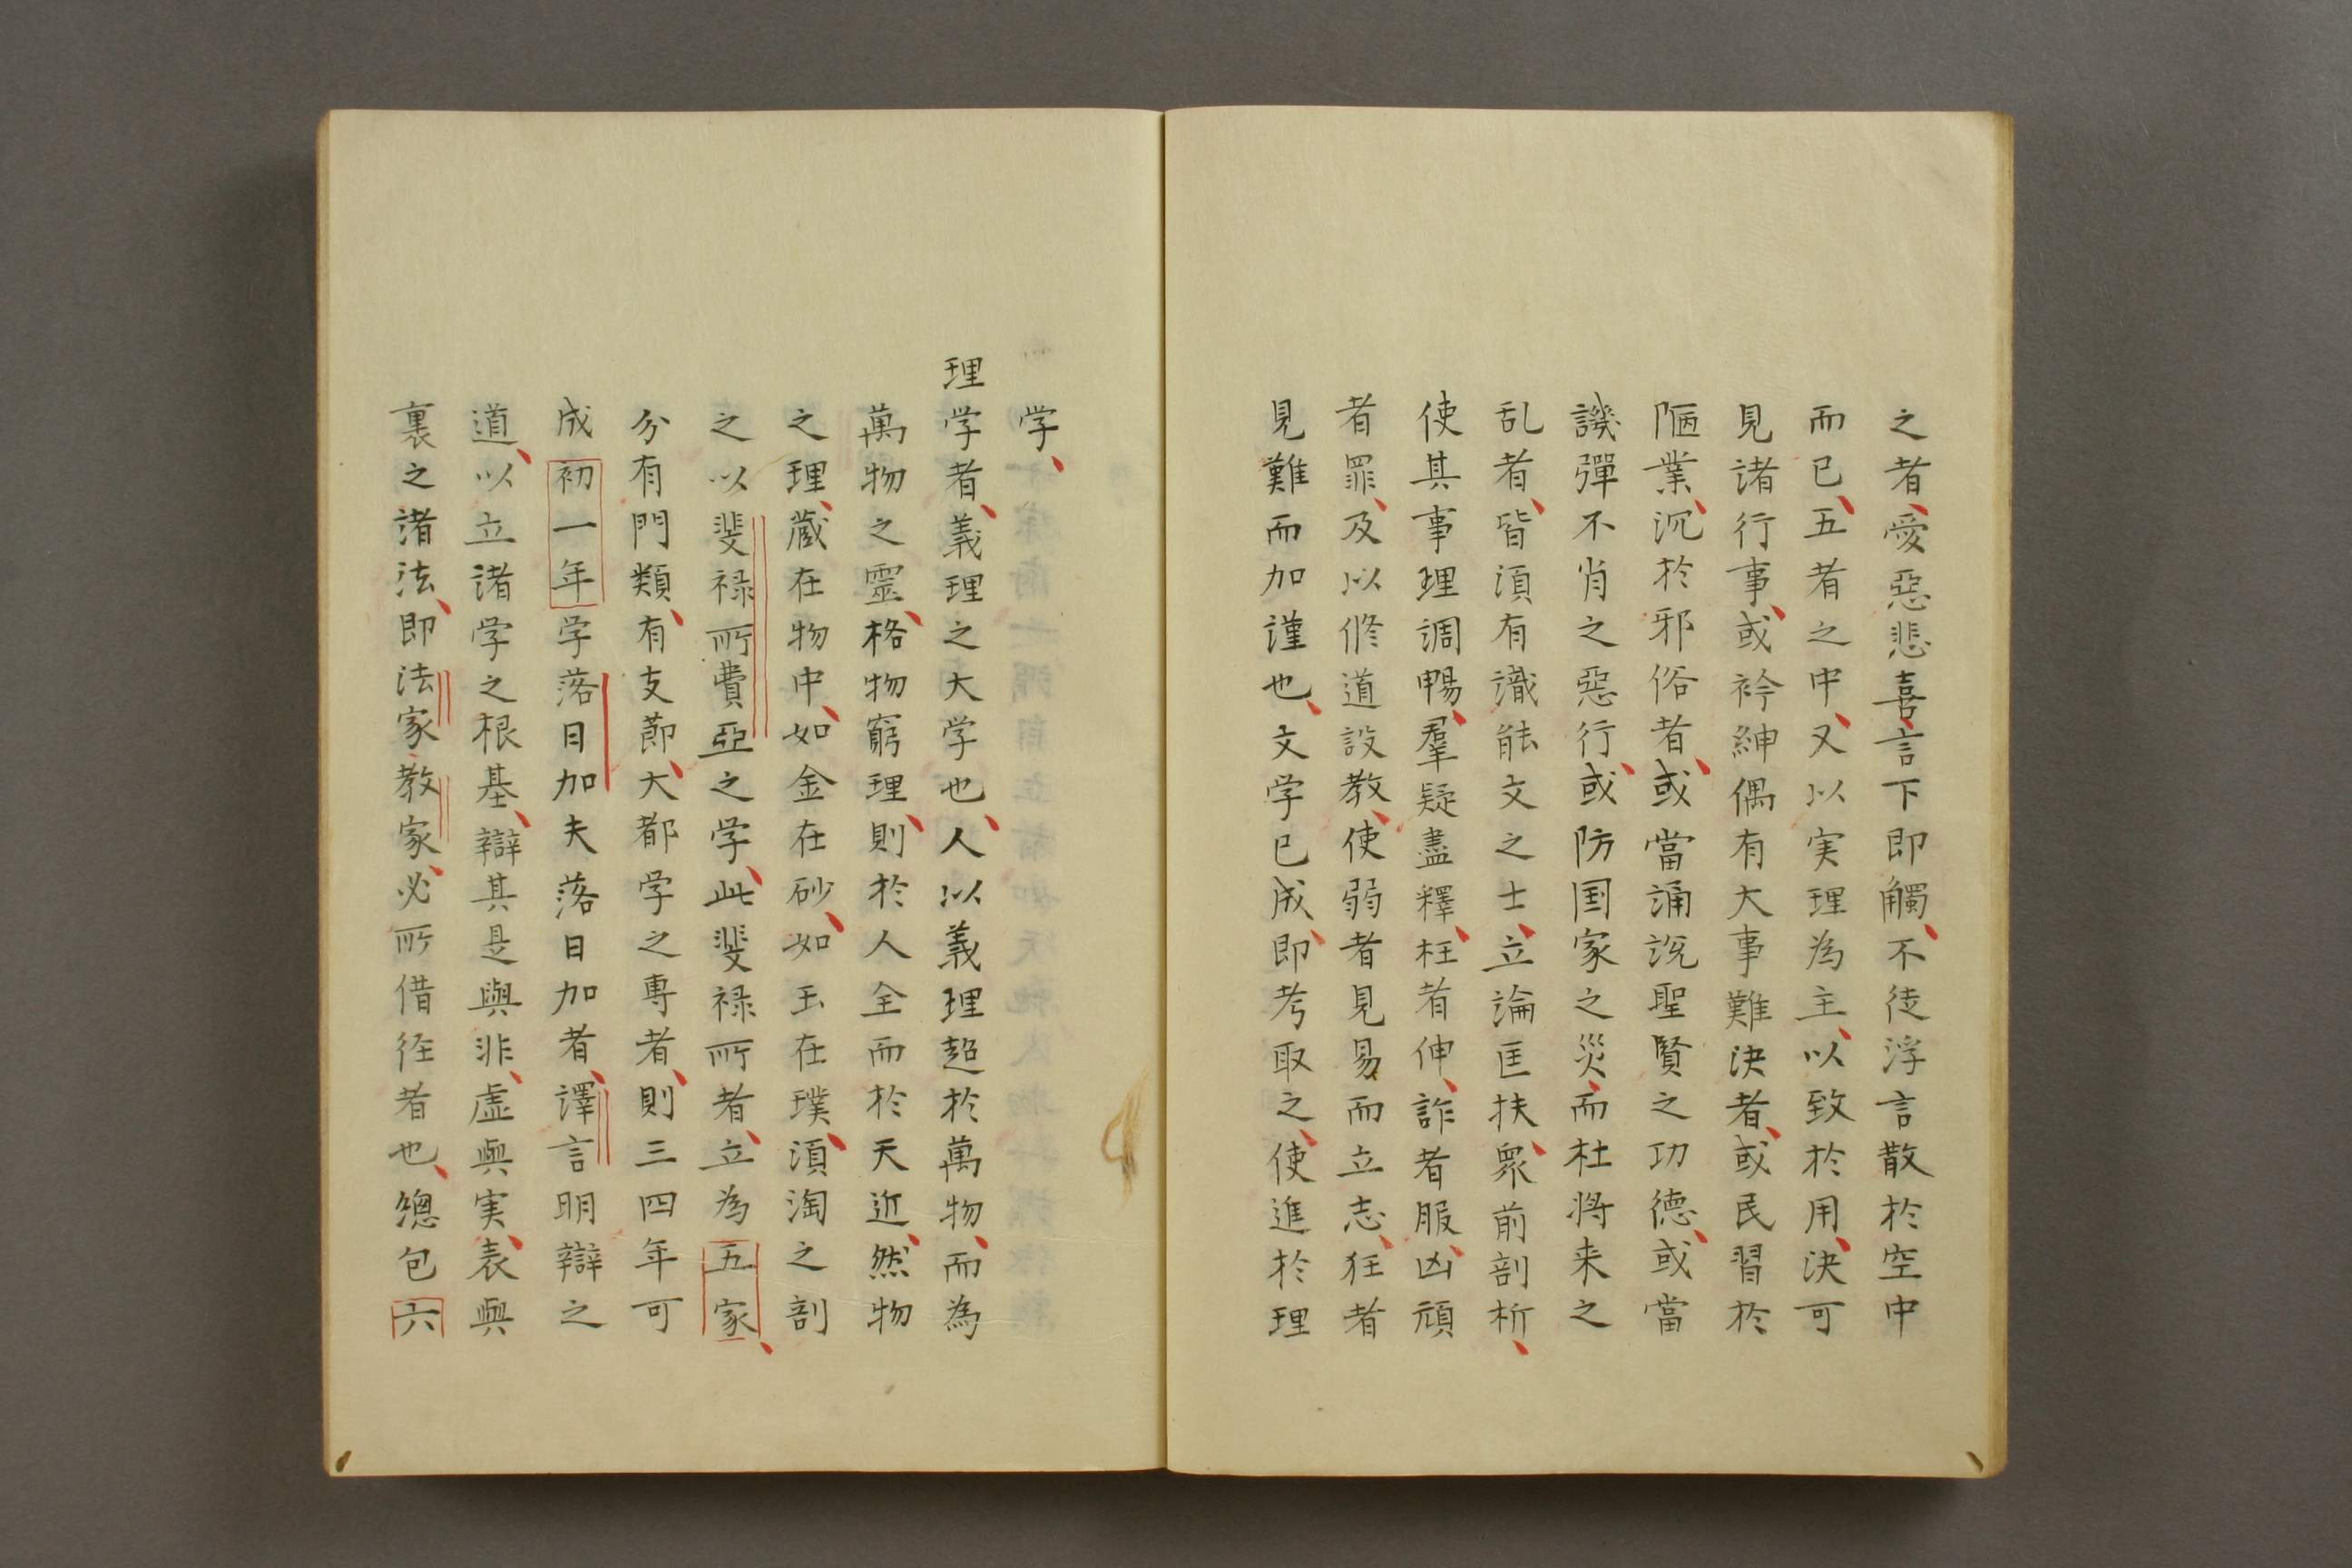 之者、愛惡悲喜、言下即觸、不徒浮言散於空中
而已、五者之中、又以実理為主、以致於用、決可
見諸行事、或衿紳偶有大事難決者、或民習於
陋業、沉於邪俗者、或當誦説聖賢之功德、或當
譏彈不肖之惡行、或防国家之災、而杜将来之
乱者、皆湏有識能文之士、立論匡扶、衆前剖析、
使其事理調暢、羣疑盡釋、枉者伸、詐者服、凶頑
者罪、及以脩道設教、使弱者見易而立志、狂者
見難而加謹也、文学已成、即考取之、使進於理
学、
理学者、義理之大学也、人以義理超於萬物、而為
萬物之靈、格物窮理、則於人全而於天近、然物
之理、蔵在物中、如金在砂、如玉在璞、湏淘之剖
之以斐禄所費亞之学、此斐禄所者、立為五家、
分有門類、有支莭、大都学之専者、則三四年可
成初一年学落日加夫落日加者、譯言明辯之
道、以立諸学之根基、辯其是與非、虚與実、表與
裏之諸法、即法家教家、必所借徑者也、總包六